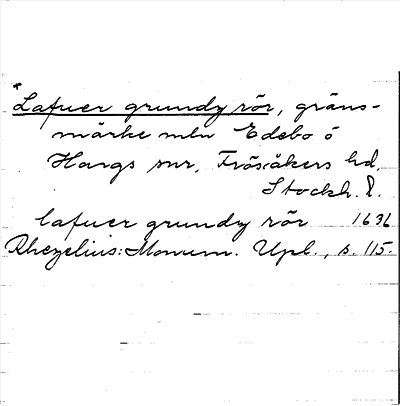 *Lafuer grundz rör, gräns-
märke mln Edebo o
Hargs snr, Frösåkers hd.
Stockh. l.
lafuer grundz rör 1636
Rhezelius: Monum. Upl., s. 115.